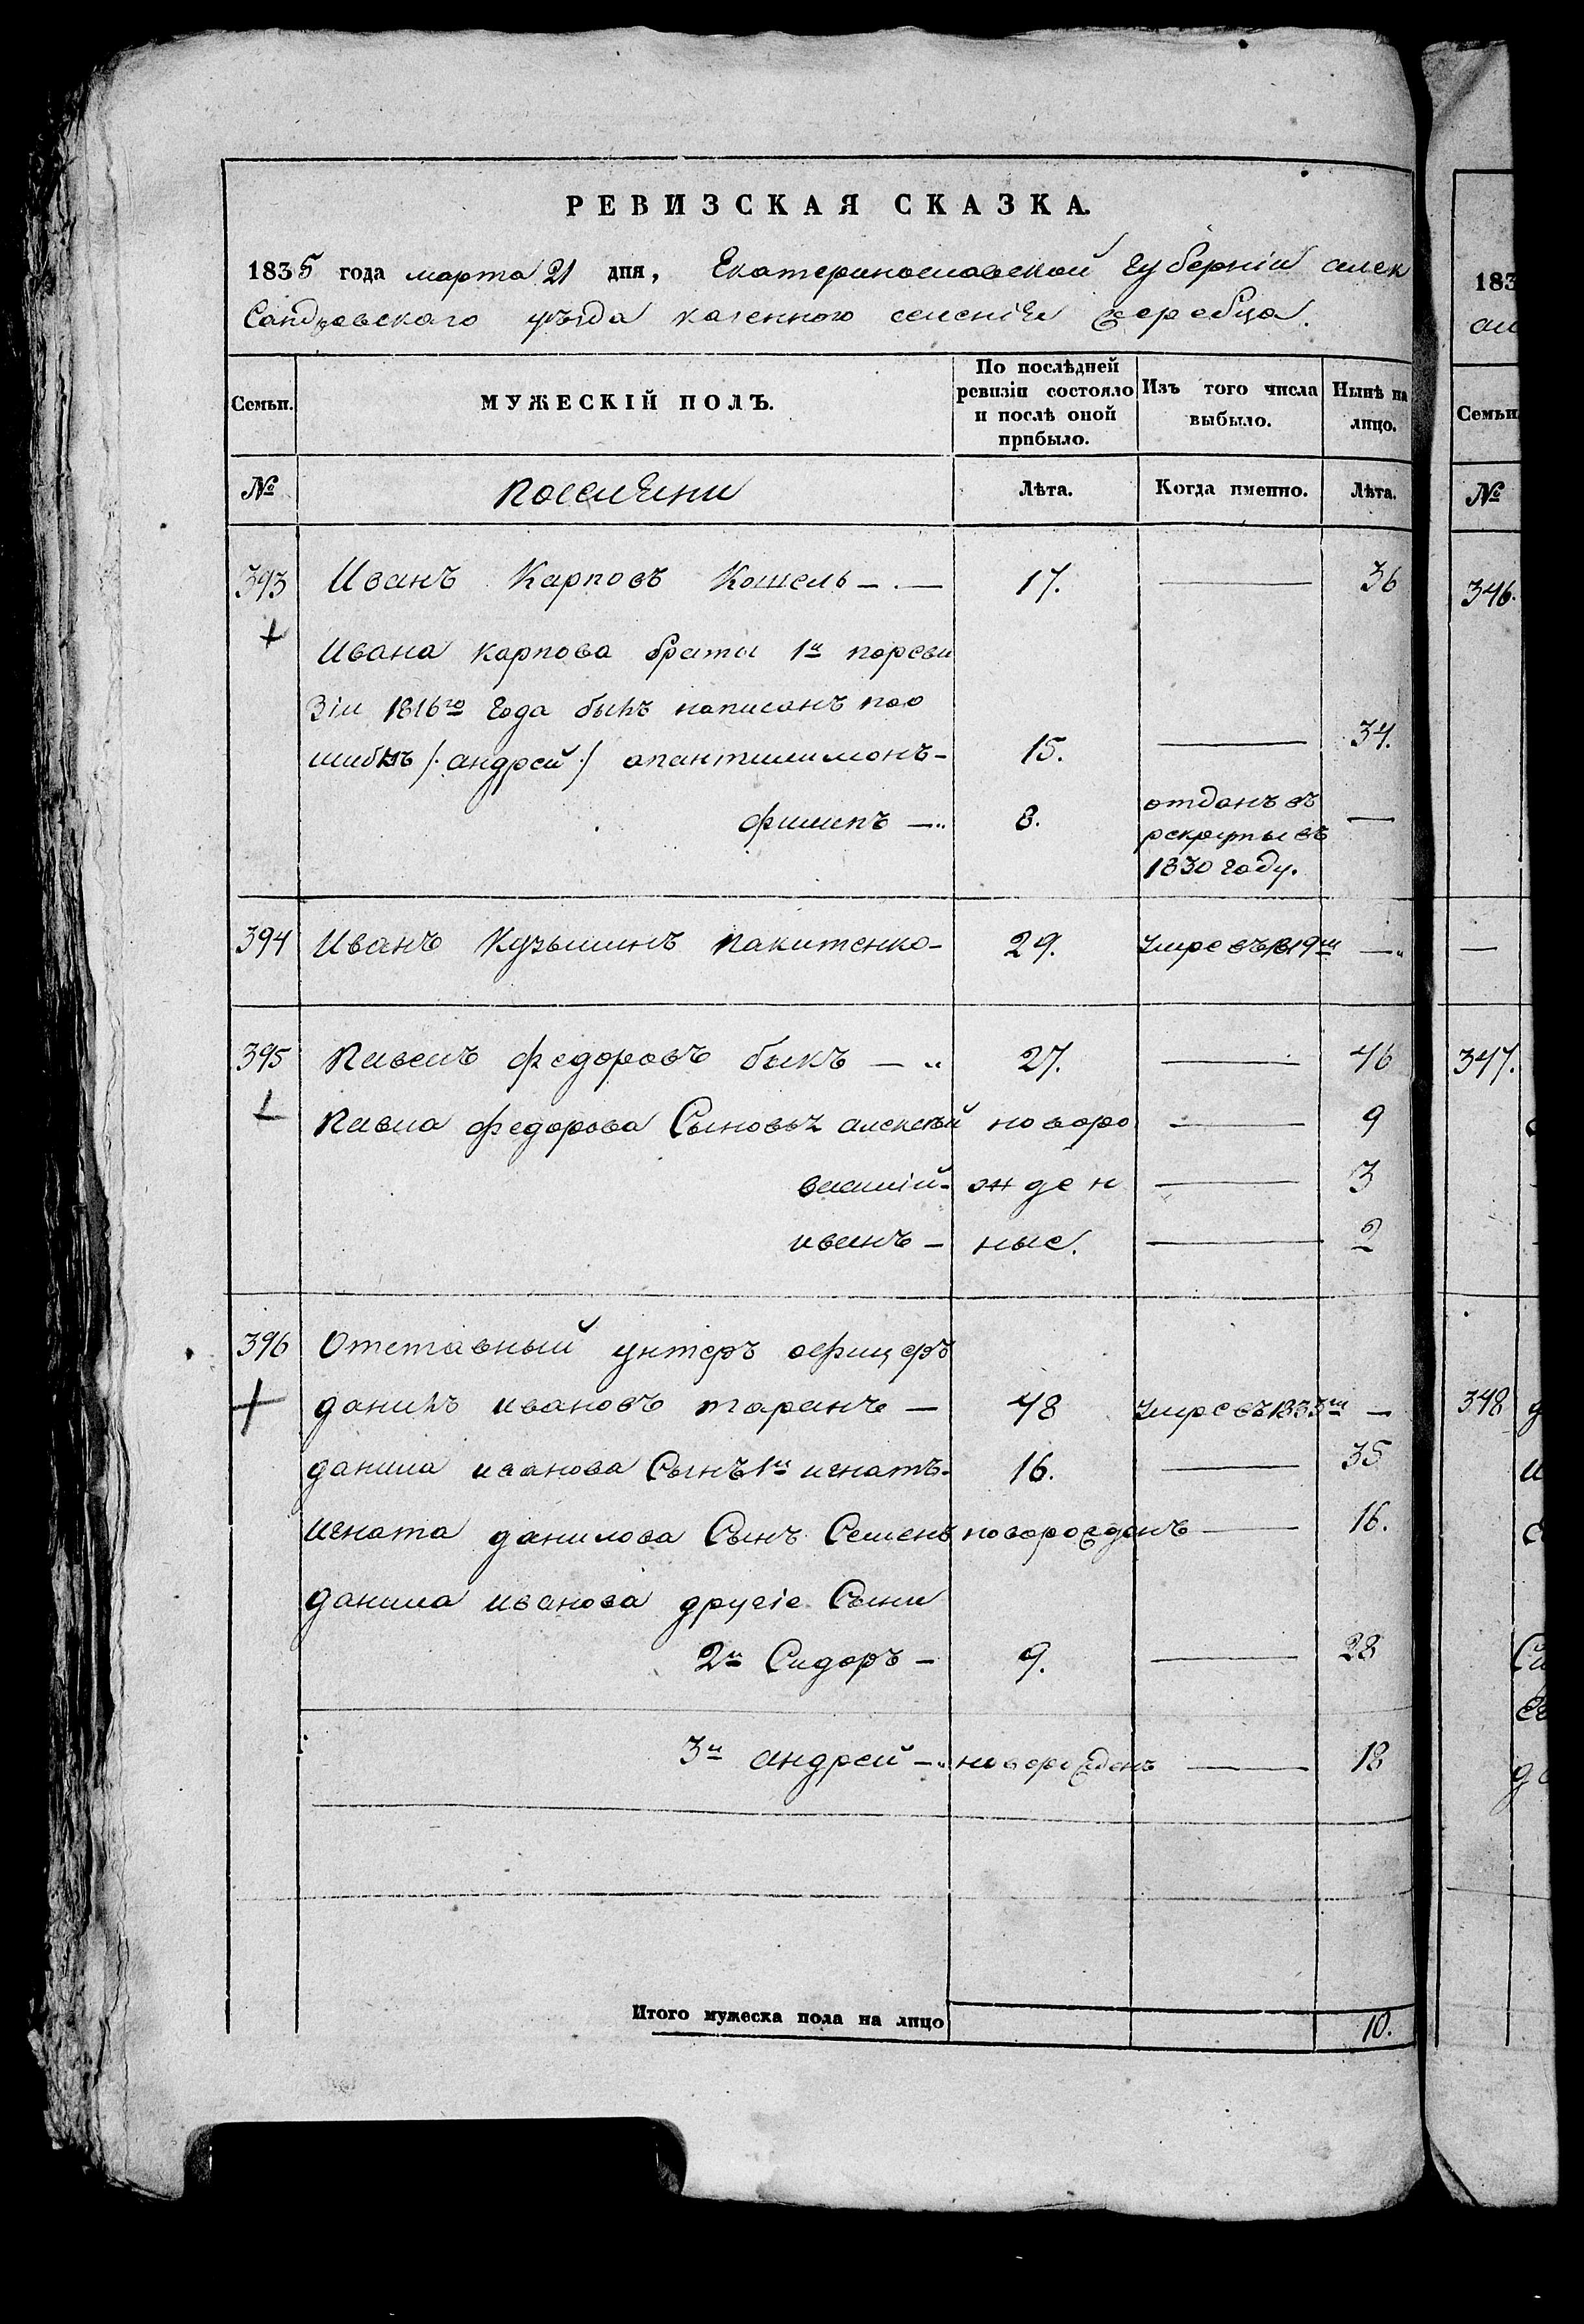 РЕВИЗСКАЯ СКАЗКА.
1835 года марта 21 дня, Екатеринославской губерніи алек
Сандровскаго уѣзда казенного селеніе жеребца.
Семьи. МУЖЕСКІЙ ПОЛЪ. По послѣдней ревизіи состояло и послѣ оной прибыло. Изъ того числа выбыло. Нынѣ на лицо.
№ поселяни Лѣта. Когда именно. Лѣта.
393 Иванъ Карповъ Кошель 17. — 36
Ивана карпова братя 1й пореви
зіи 1816го года былъ написанъ поо
шибкѣ /: андрей :/ апантилимонъ - 15. — 34.
филипъ — 8. отданъ въ рекруты въ 1830 году. —
394 Иванъ Кузьминъ пакитенко - 29. умре въ 1819м —
395 Павелъ федоровъ быкъ — 27. — 46
Павла федорова Сыновья алексѣй новоро — 9
василій - жден — 3
иванъ - ные. — 2
396 Отставный унтеръ офицеръ
данилъ ивановъ таранъ — 48 умре въ 1833м —
данила иванова Сынъ 1й игнатъ - 16. — 35
игната данилова Сынъ Семенъ новорожденъ — 16.
данила иванова другіе Сыни
2й Сидоръ - 9. — 28
3й андрей — новорожденъ — 18
Итого мужеска пола на лицо 10.
183
ал
Семьи
№
346.
—
347.
348